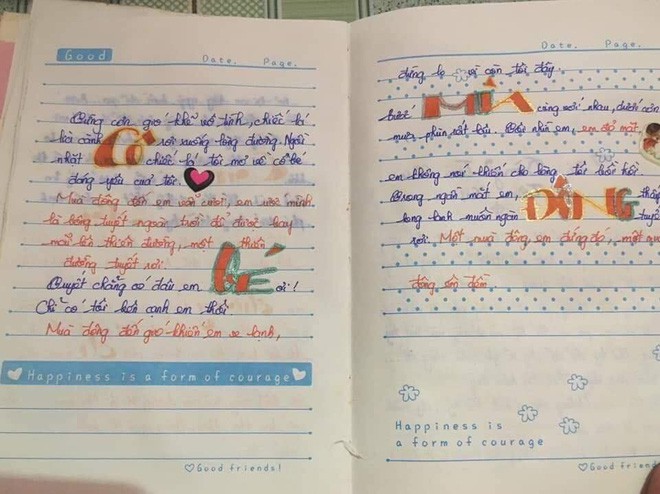 Good
Date. Page.
Từng cơn gió khẽ vô tình, chiếc lá
lìa cành rơi xuống lòng đường. Ngồi
nhặt chiếc lá tôi mơ về cô bé
đáng yêu của tôi.
Mùa đông đến em vẫn cười, em ước mình
là bông tuyết ngoài trời để được bay
mãi lên thiên đường, một thiên
đường tuyết rơi.
Tuyết chẳng có đâu em BÉ ơi!
Chỉ có tôi bên cạnh em thôi
Mùa đông đến gió khiến em se lạnh,
Happiness is a form of courage
Good friends!
Date. Page.
đừng lo vì còn tôi đây.
bước MÙA cùng với nhau, dưới cơn
mưa phùn rất lâu. Tôi nhìn em, em đỏ mặt,
em không nói khiến cho lòng tôi bồi hồi
Trong ngần mắt em, ĐÔNG
long lanh muôn ngàn
rơi. Một mùa đông em đứng đó, một
đông êm đềm
Happiness is
a form of courage
Good friends!